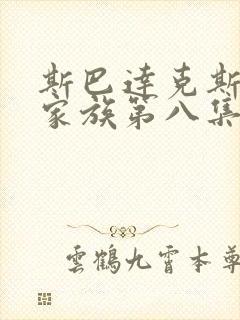 斯巴達克斯
家族第八集
雲鶴九霄本尊